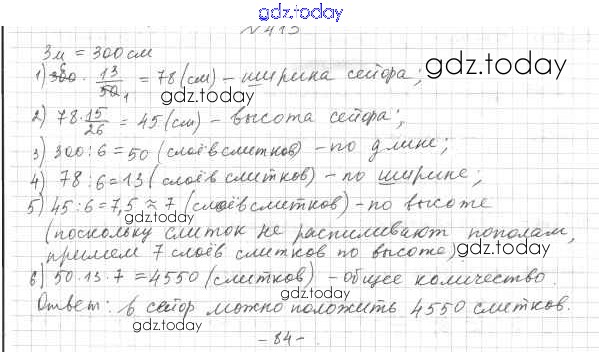 gdz.today
№ 415
3м = 300 см
gdz.today
1) 300⁶ · 13/50₁ = 78 (см) – ширина сейфа;
gdz.today
2) 78 · 15/26 = 45 (см) – высота сейфа;
gdz.today
3) 300 : 6 = 50 (слоёв слитков) – по длине;
4) 78 : 6 = 13 (слоёв слитков) – по ширине;
gdz.today
5) 45 : 6 = 7,5 ≈ 7 (слоёв слитков) – по высоте
gdz.today
(поскольку слиток не распиливают пополам,
примем 7 слоёв слитков по высоте)
gdz.today
6) 50 · 13 · 7 = 4550 (слитков) – общее количество.
gdz.today
Ответ: в сейф можно положить 4550 слитков.
gdz.today
– 84 –